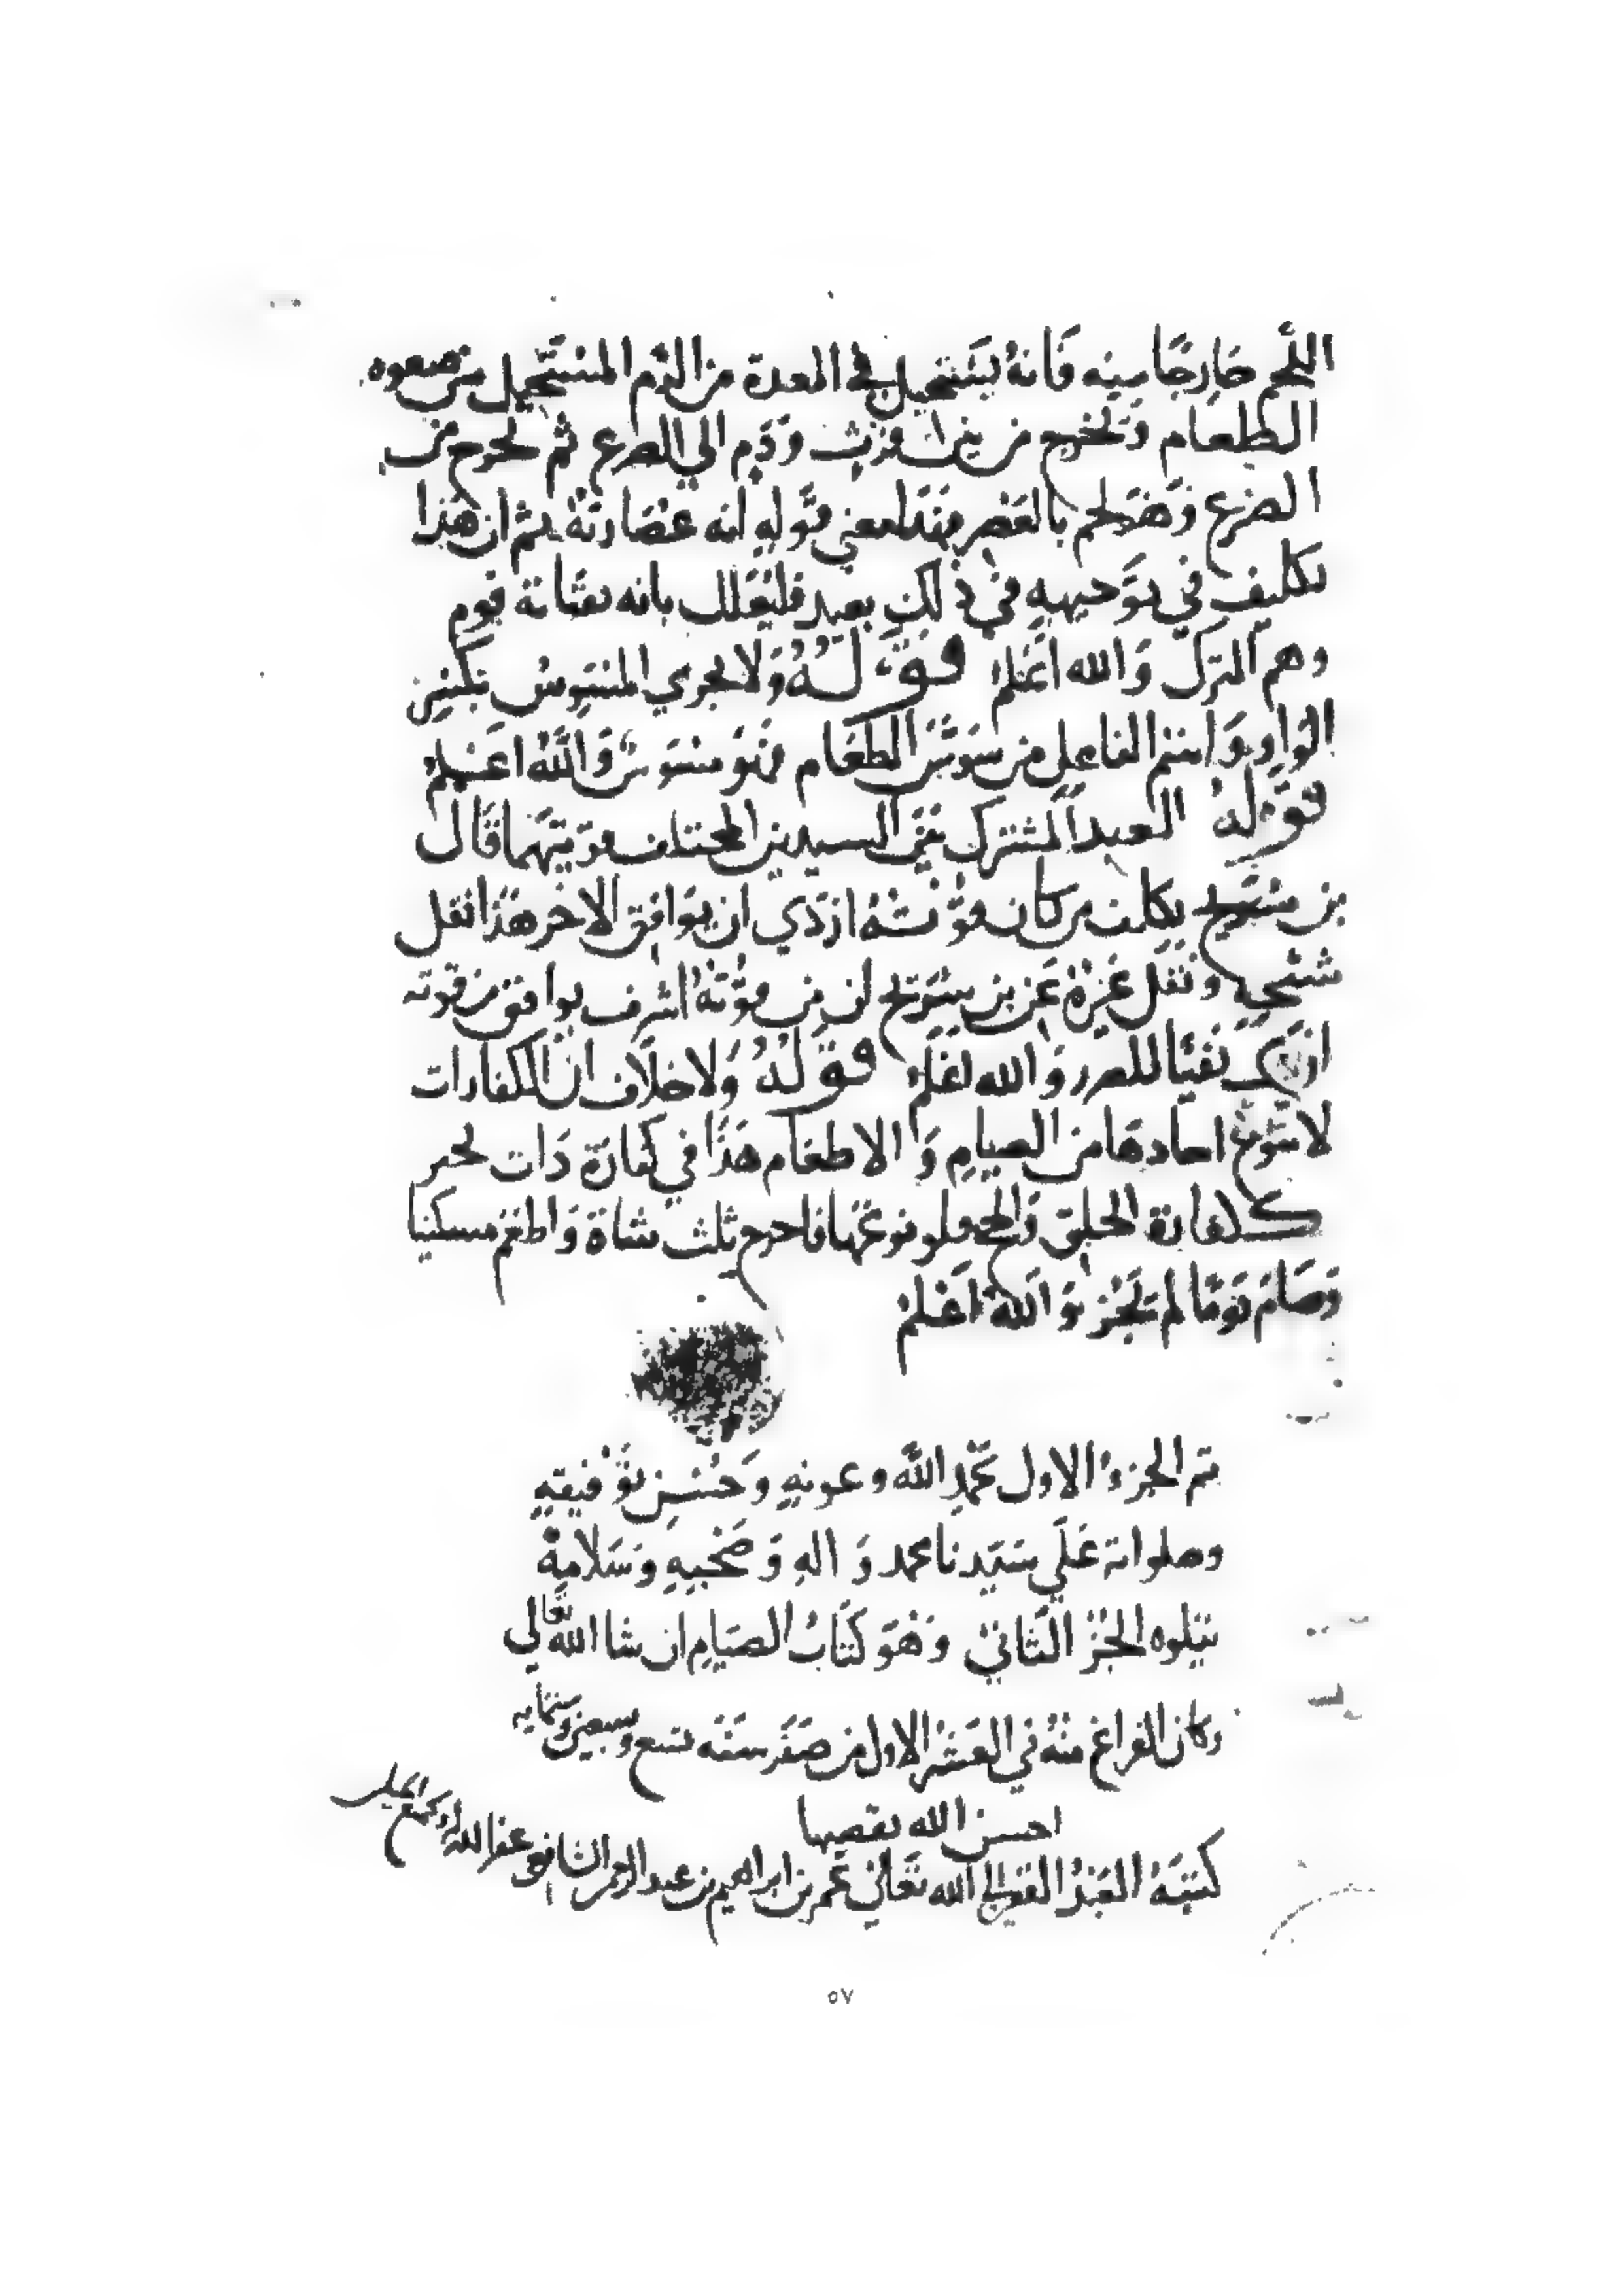 اللحم خارجا منه فانه يستحيل في المعدة من الدم المستحيل من صفوه
الطعام ويخرج من بين فرث ودم الي الضرع ثم يخرج من
الضرع وهو لحم بالعصر فهذا معني قوله انه عصارته ثم ان هذا
تكليف في توجيهه في ذلك بعيد فليعلل بانه يقتاته قوم
وهم الترك والله اعلم قوله ولا يجزي المسوس بكسر
الواو واسم الفاعل من سوس الطعام فهو مسوس والله اعلم
قوله العبد المشترك بين السيدين المختلف قوتهما قال
بن سريج يكلف من كان قوته اردي ان يوافق الاخر هذا نقل
شيخي ونقل غيره عن بن سريج ان من قوته اشرف يوافق من قوته
نفيا للضرر والله اعلم قوله ولا خلاف ان الكفارات
لا تتنوع احادها من الصيام والاطعام هذا في كفارة ذات تخير
ككفارة الحلق في الحج فلو نوعها فاخرج ثلث شاة واطعم مسكينا
وصام يوما لم تجز والله اعلم
تم الجزء الاول بحمد الله وعونه وحسن توفيقه
وصلواته علي سيدنا محمد واله وصحبه وسلامه
يتلوه الجز الثاني وهو كتاب الصيام ان شا الله تعالي
وكان الفراغ منه في العشر الاول من صفر سنه تسع وسبعين وستمايه
احسن الله تقضيها
كتبه العبد الفقير الي الله تعالي عمر بن ابراهيم بن عبد الرحمن الشافعي عفا الله له ولجميع المسلمين
٥٧